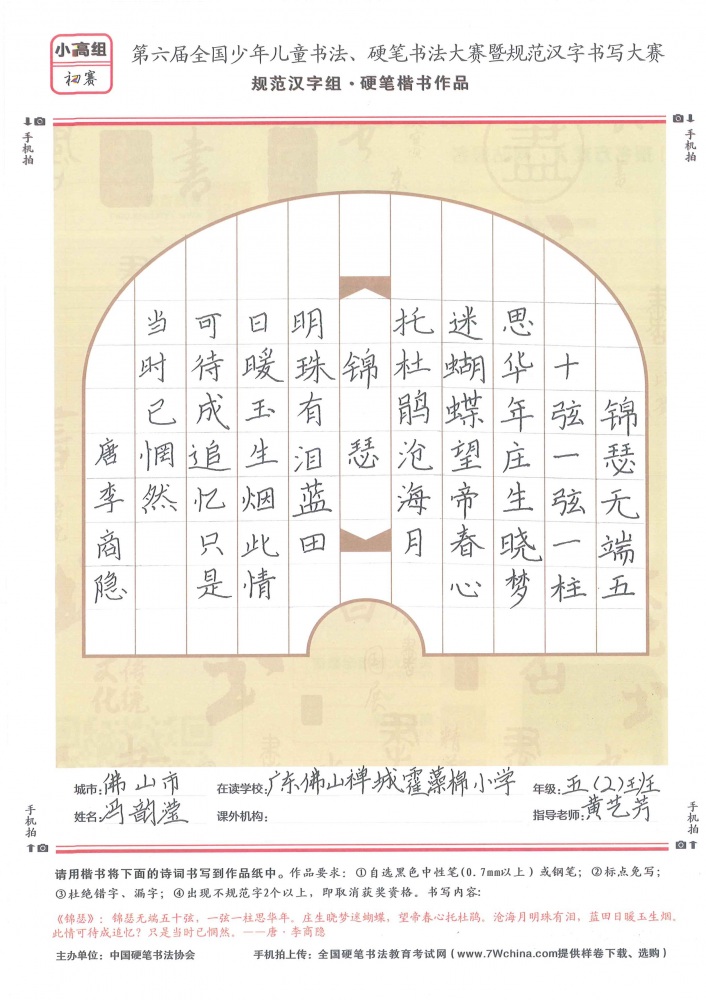 小高组
初赛
第六届全国少年儿童书法、硬笔书法大赛暨规范汉字书写大赛
规范汉字组·硬笔楷书作品
手机拍
手机拍
锦瑟无端五
十弦一弦一柱
思华年庄生晓梦
迷蝴蝶望帝春心
托杜鹃沧海月
锦瑟
明珠有泪蓝田
日暖玉生烟此情
可待成追忆只是
当时已惘然
唐李商隐
城市:佛山市 在读学校:广东佛山禅城霍藻棉小学 年级:五(2)班
姓名:冯韵滢 课外机构: 指导老师:黄艺芳
手机拍
手机拍
请用楷书将下面的诗词书写到作品纸中。作品要求:①自选黑色中性笔(0.7mm以上)或钢笔;②标点免写;
③杜绝错字、漏字;④出现不规范字2个以上,即取消获奖资格。书写内容:
《锦瑟》:锦瑟无端五十弦,一弦一柱思华年。庄生晓梦迷蝴蝶,望帝春心托杜鹃。沧海月明珠有泪,蓝田日暖玉生烟。
此情可待成追忆?只是当时已惘然。——唐·李商隐
主办单位:中国硬笔书法协会 手机拍上传:全国硬笔书法教育考试网(www.7Wchina.com提供样卷下载、选购)